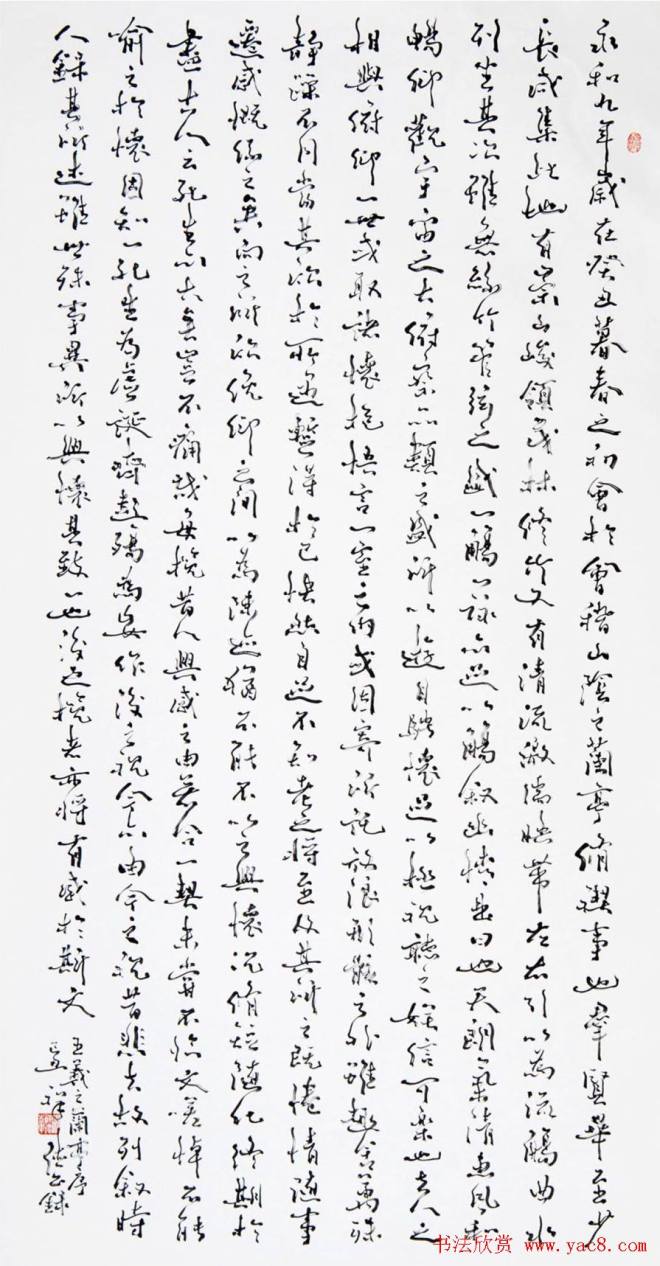 永和九年歲在癸丑暮春之初會於會稽山陰之蘭亭脩禊事也羣賢畢至少
長咸集此地有崇山峻領茂林修竹又有清流激湍暎帶左右引以為流觴曲水
列坐其次雖無絲竹管弦之盛一觴一詠亦足以暢敘幽情是日也天朗氣清惠風和
暢仰觀宇宙之大俯察品類之盛所以遊目騁懷足以極視聽之娛信可樂也夫人之
相與俯仰一世或取諸懷抱悟言一室之內或因寄所託放浪形骸之外雖趣舍萬殊
靜躁不同當其欣於所遇暫得於己快然自足不知老之將至及其所之既惓情隨事
遷感慨係之矣向之所欣俛仰之間以為陳迹猶不能不以之興懷況脩短隨化終期於
盡古人云死生亦大矣豈不痛哉每攬昔人興感之由若合一契未嘗不臨文嗟悼不能
喻之於懷固知一死生為虛誕齊彭殤為妄作後之視今亦由今之視昔悲夫故列敘時
人錄其所述雖世殊事異所以興懷其致一也後之攬者亦將有感於斯文
王羲之蘭亭序
書法欣赏 www.yac8.com